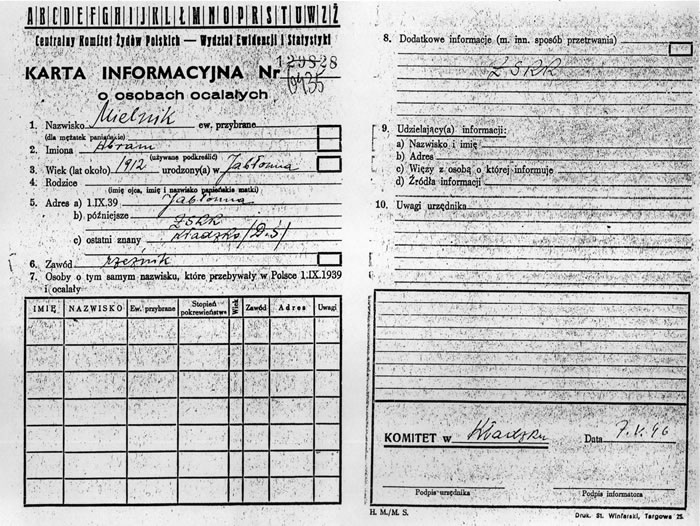 A B C D E F G H I J K L Ł M N O P R S T U W Z Ż
Centralny Komitet Żydów Polskich — Wydział Ewidencji i Statystyki
KARTA INFORMACYJNA Nr 129828
6435
o osobach ocalałych
1. Nazwisko Mielnik ew. przybrane
(dla mężatek panieńskie)
2. Imiona Abram
(używane podkreślić)
3. Wiek (lat około) 1912 urodzony(a) w Jabłonna
4. Rodzice
(imię ojca, imię i nazwisko panieńskie matki)
5. Adres a) 1.IX.39 Jabłonna
b) późniejsze ZSRR
c) ostatni znany Kładzko (D.Ś)
6. Zawód rzeźnik
7. Osoby o tym samym nazwisku, które przebywały w Polsce 1.IX.1939
i ocalały
IMIĘ NAZWISKO Ew. przybrane Stopień pokrewieństwa Wiek Zawód Adres Uwagi
8. Dodatkowe informacje (m. inn. sposób przetrwania)
ZSRR
9. Udzielający(a) informacji:
a) Nazwisko i imię
b) Adres
c) Więzy z osobą o której informuje
d) Źródła informacji
10. Uwagi urzędnika
KOMITET w Kładzku Data 7.V.46
Podpis urzędnika Podpis informatora
H. M./M. S. Druk. St. Winiarski, Targowa 25.